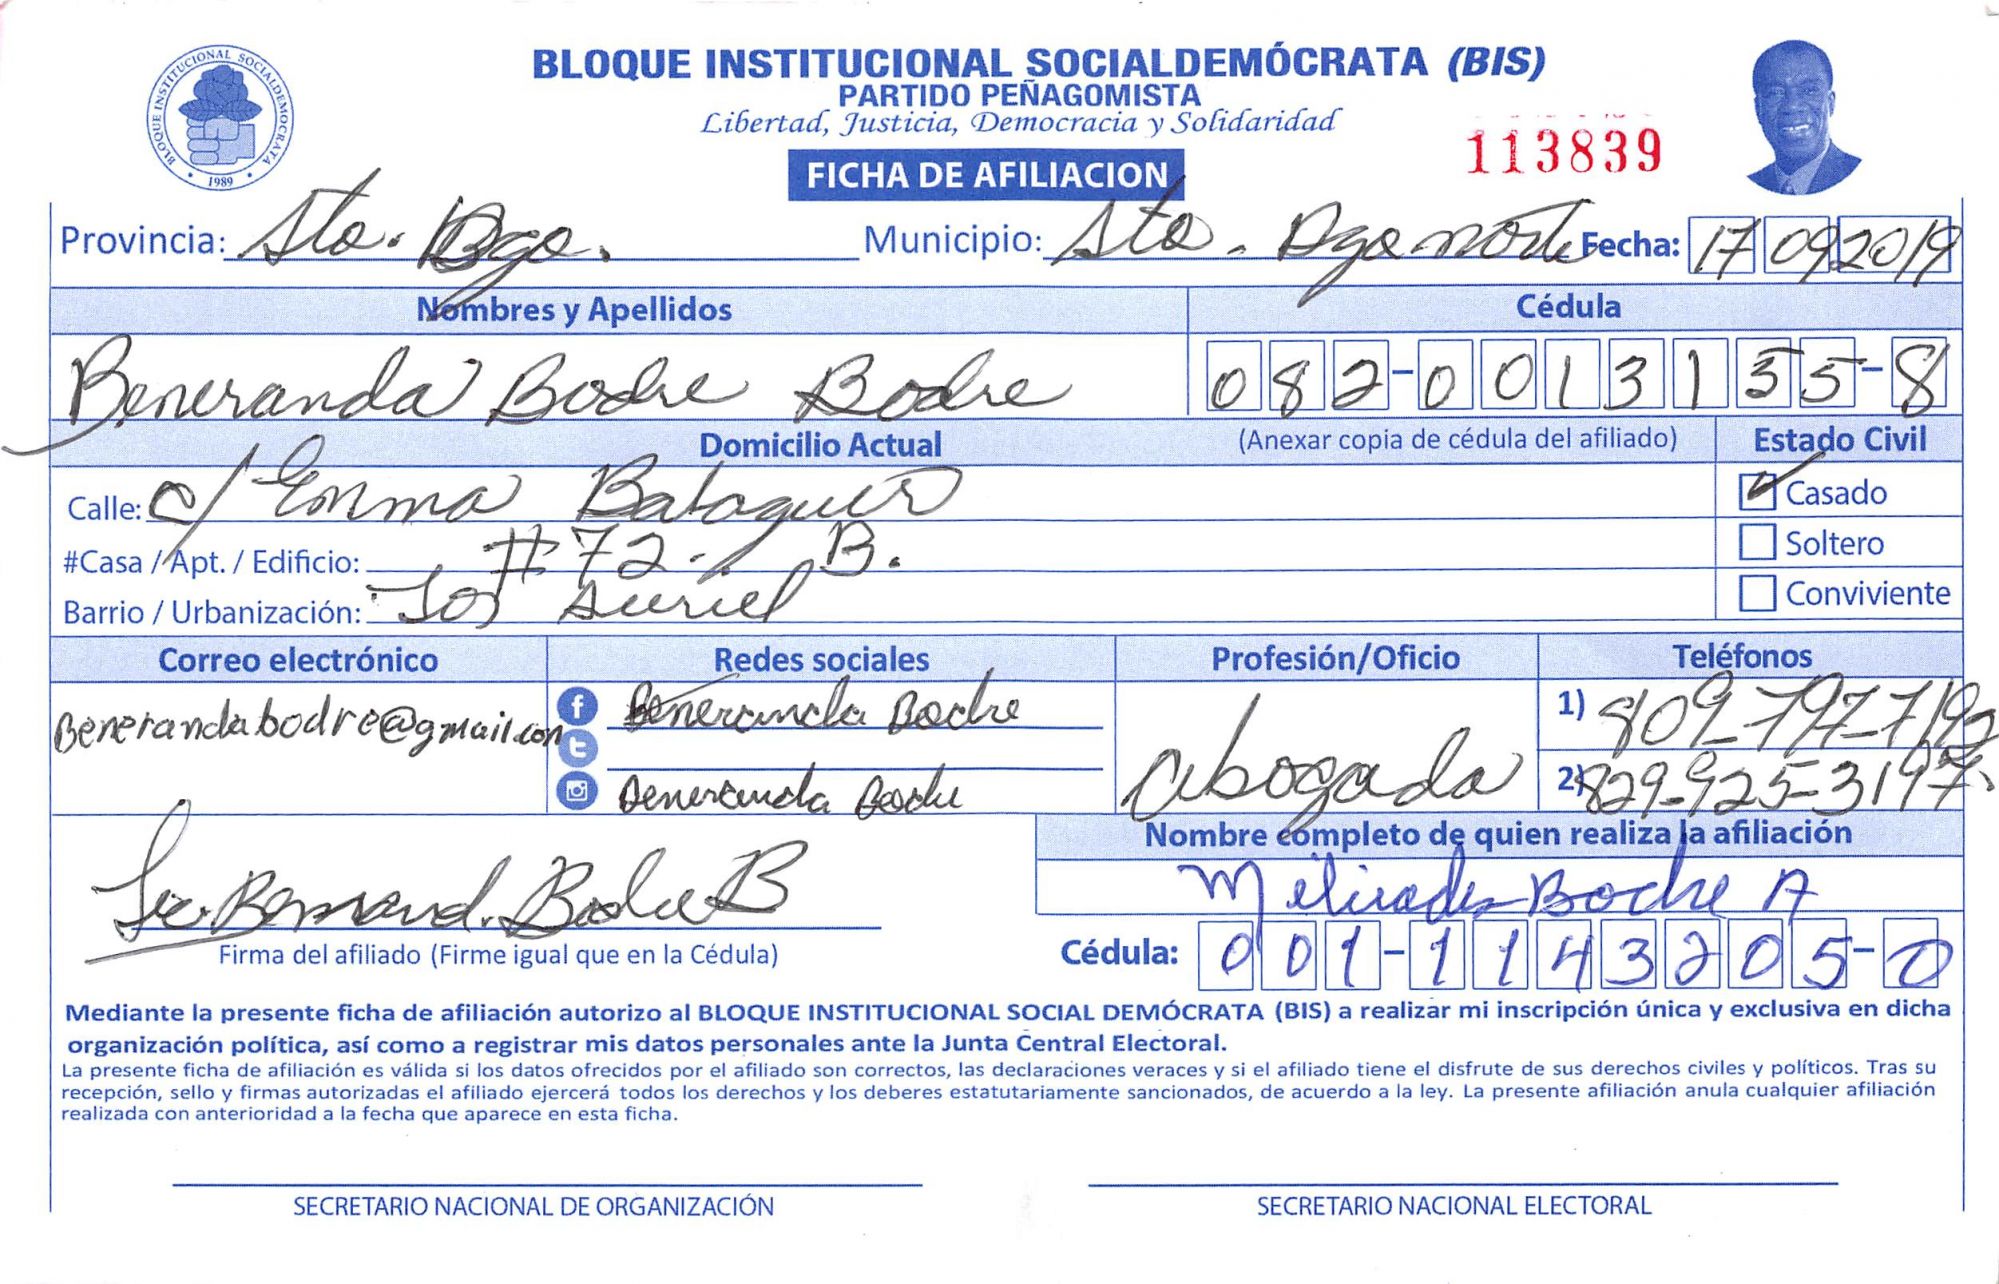 BLOQUE INSTITUCIONAL SOCIALDEMÓCRATA (BIS)
PARTIDO PEÑAGOMISTA
Libertad, Justicia, Democracia y Solidaridad
BLOQUE INSTITUCIONAL SOCIALDEMOCRATA
1989
113839
FICHA DE AFILIACION
Provincia: Sto. Dgo. Municipio: Sto. Dgo norte Fecha: 17 09 2019
Nombres y Apellidos Cédula
Beneranda Bodre Bodre 082-0013155-8
Domicilio Actual (Anexar copia de cédula del afiliado) Estado Civil
Calle: c/ Emma Balaguer Casado
#Casa / Apt. / Edificio: #72- B. Soltero
Barrio / Urbanización: Conviviente
Correo electrónico Redes sociales Profesión/Oficio Teléfonos
Benerandabodre@gmail.com Beneranda Bodre Abogada 1) 809-797-7192
Beneranda Bodre 2) 829-925-3197
Nombre completo de quien realiza la afiliación
Bodre B Bodre A
Firma del afiliado (Firme igual que en la Cédula) Cédula: 001-1143205-0
Mediante la presente ficha de afiliación autorizo al BLOQUE INSTITUCIONAL SOCIAL DEMÓCRATA (BIS) a realizar mi inscripción única y exclusiva en dicha
organización política, así como a registrar mis datos personales ante la Junta Central Electoral.
La presente ficha de afiliación es válida si los datos ofrecidos por el afiliado son correctos, las declaraciones veraces y si el afiliado tiene el disfrute de sus derechos civiles y políticos. Tras su
recepción, sello y firmas autorizadas el afiliado ejercerá todos los derechos y los deberes estatutariamente sancionados, de acuerdo a la ley. La presente afiliación anula cualquier afiliación
realizada con anterioridad a la fecha que aparece en esta ficha.
SECRETARIO NACIONAL DE ORGANIZACIÓN SECRETARIO NACIONAL ELECTORAL